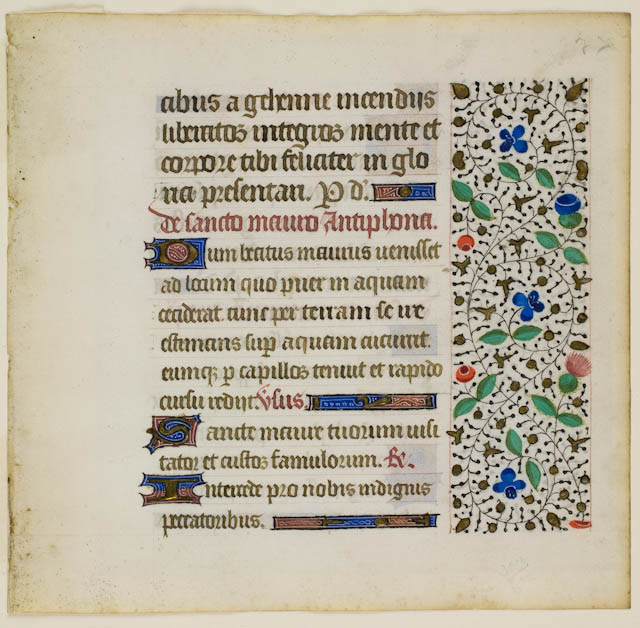 cibus a gehenne incendijs
liberatos integros mente et
corpore tibi feliciter in glo
ria presentari. P d.
De sancto mauro Antiphona.
Dum beatus maurus venisset
ad locum quo puer in aquam
ceciderat. tunc per terram se ire
estimans sup aquam cucurrit.
eumq; p capillos tenuit et rapido
cursu redijt. Vsus.
Sancte maure tuorum visi
tator et custos famulorum. R.
Intercede pro nobis indignis
peccatoribus.